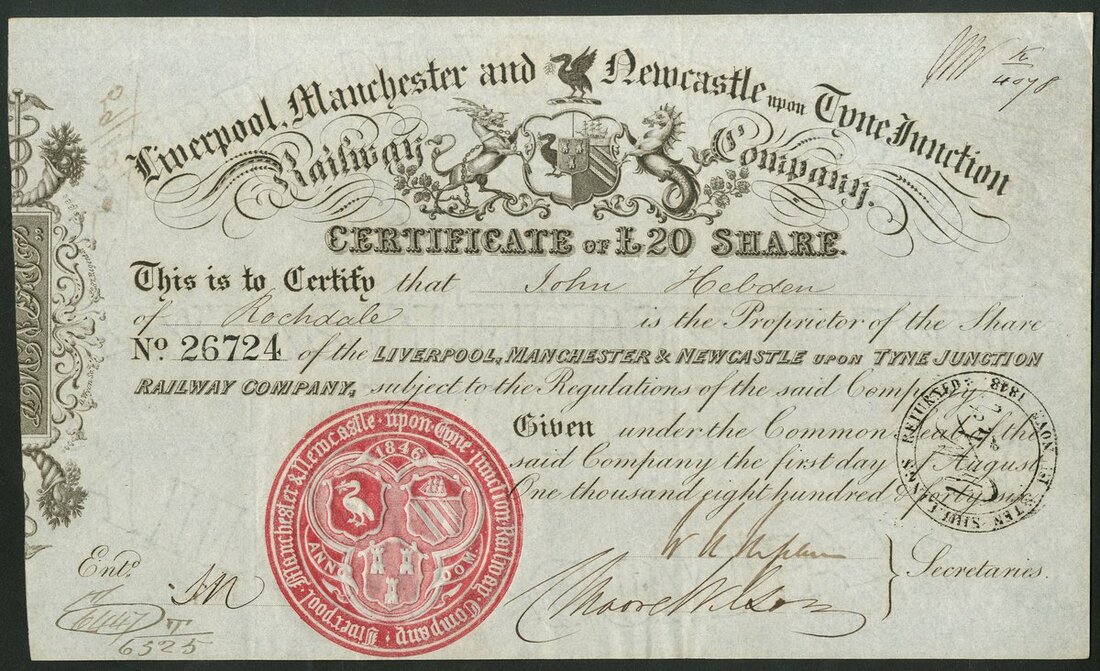 Liverpool, Manchester and Newcastle upon Tyne Junction
Railway Company.
CERTIFICATE OF £20 SHARE.
This is to Certify that John Hebden
of Rochdale is the Proprietor of the Share
No. 26724 of the LIVERPOOL, MANCHESTER & NEWCASTLE UPON TYNE JUNCTION
RAILWAY COMPANY, subject to the Regulations of the said Company
Given under the Common Seal of the
said Company the first day of August
One thousand eight hundred & forty six
Secretaries.
Entd.
6525
4078
Liverpool, Manchester & Newcastle upon Tyne Junction Railway Company
1846
ANNO DOM
TEN SHILLINGS RETURNED
NOVR 1ST 1848